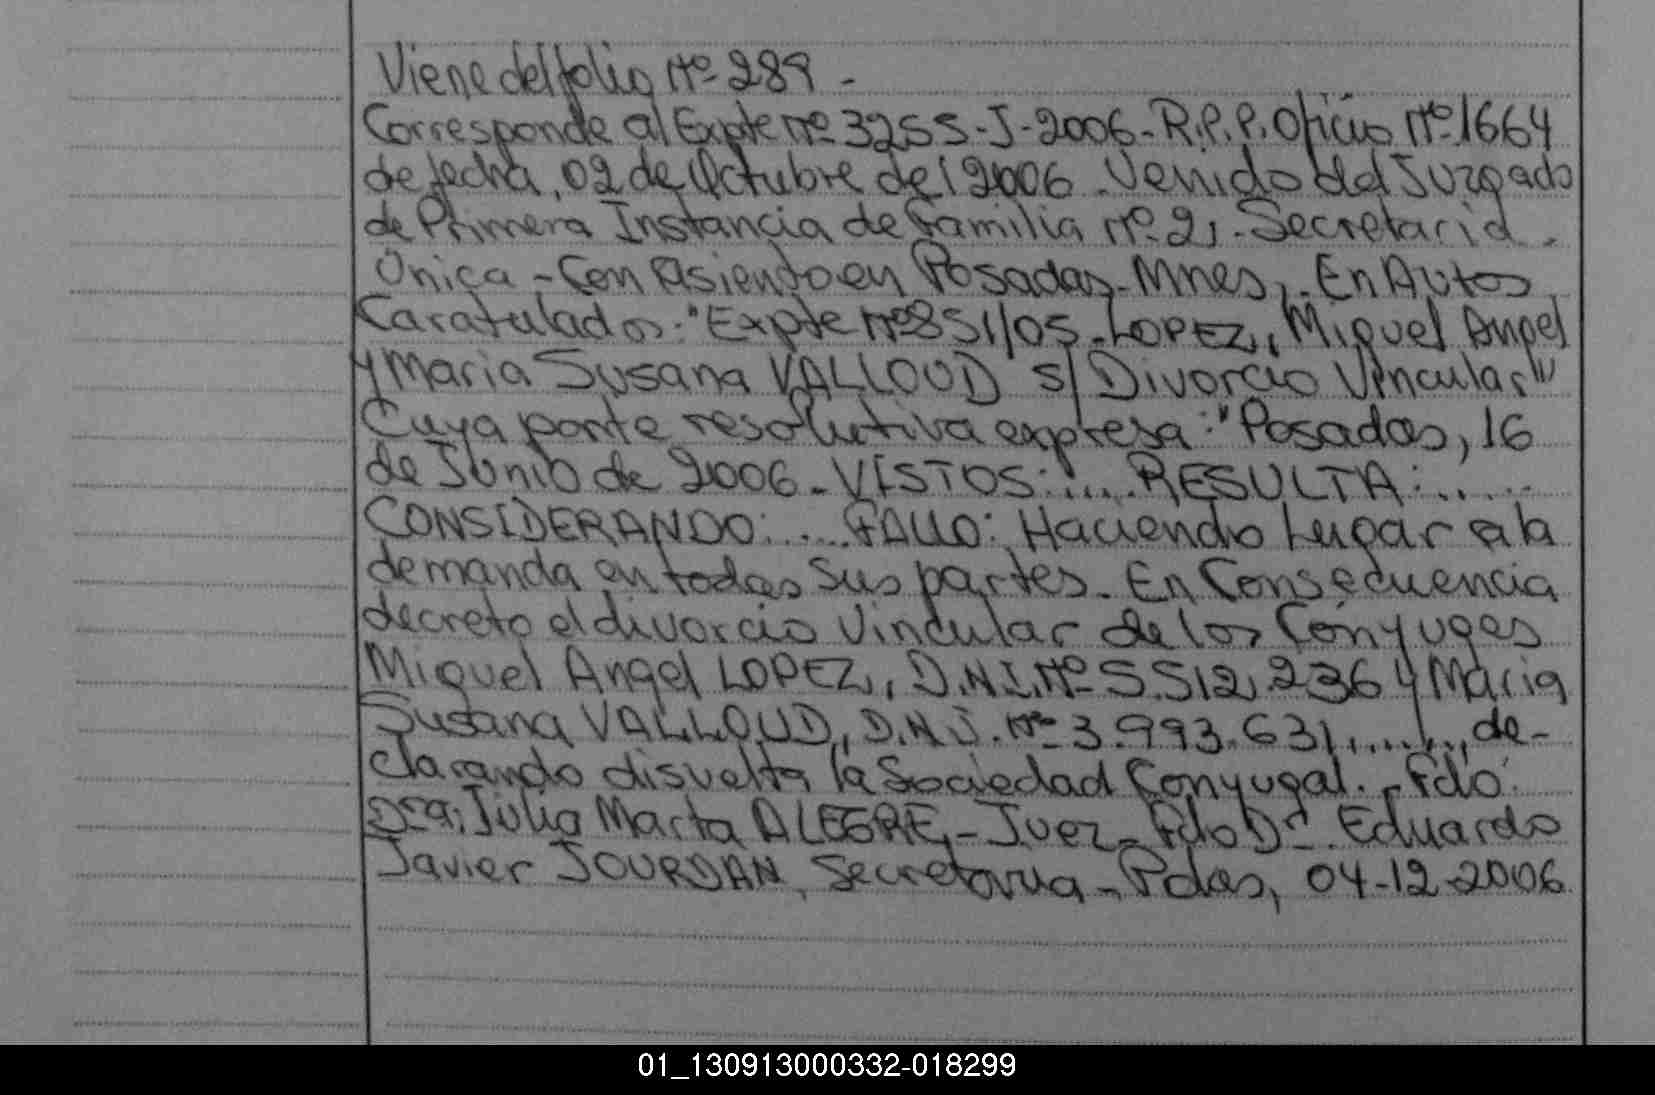 Viene del folio Nº 289.-
Corresponde al Expte nº 3255-J-2006-R.P.P. Oficio Nº 1664
de fecha, 02 de Octubre del 2006. Venido del Juzgado
de Primera Instancia de Familia Nº 2,-Secretaria.
Única-Con Asiento en Posadas-Mnes,. En Autos
Caratulados: "Expte Nº 851/05-LOPEZ, Miguel Angel
y Maria Susana VALLOUD s/ Divorcio Vincular"
Cuya parte resolutiva expresa: "Posadas, 16
de Junio de 2006-VISTOS:.... RESULTA:.....
CONSIDERANDO:.... FALLO: Haciendo Lugar a la
demanda en todas sus partes. En Consecuencia
decreto el divorcio Vincular de los Cónyuges
Miguel Angel LOPEZ, D.N.I. Nº 5.512.236 y Maria
Susana VALLOUD, D.N.I. Nº 3.993.631,......, de-
clarando disuelta la Sociedad Conyugal.- Fdo:
Dra: Julia Marta ALEGRE,-Juez-Fdo Dr. Eduardo
Javier JOURDAN, Secretaria-Pdas, 04-12-2006
01_130913000332-018299